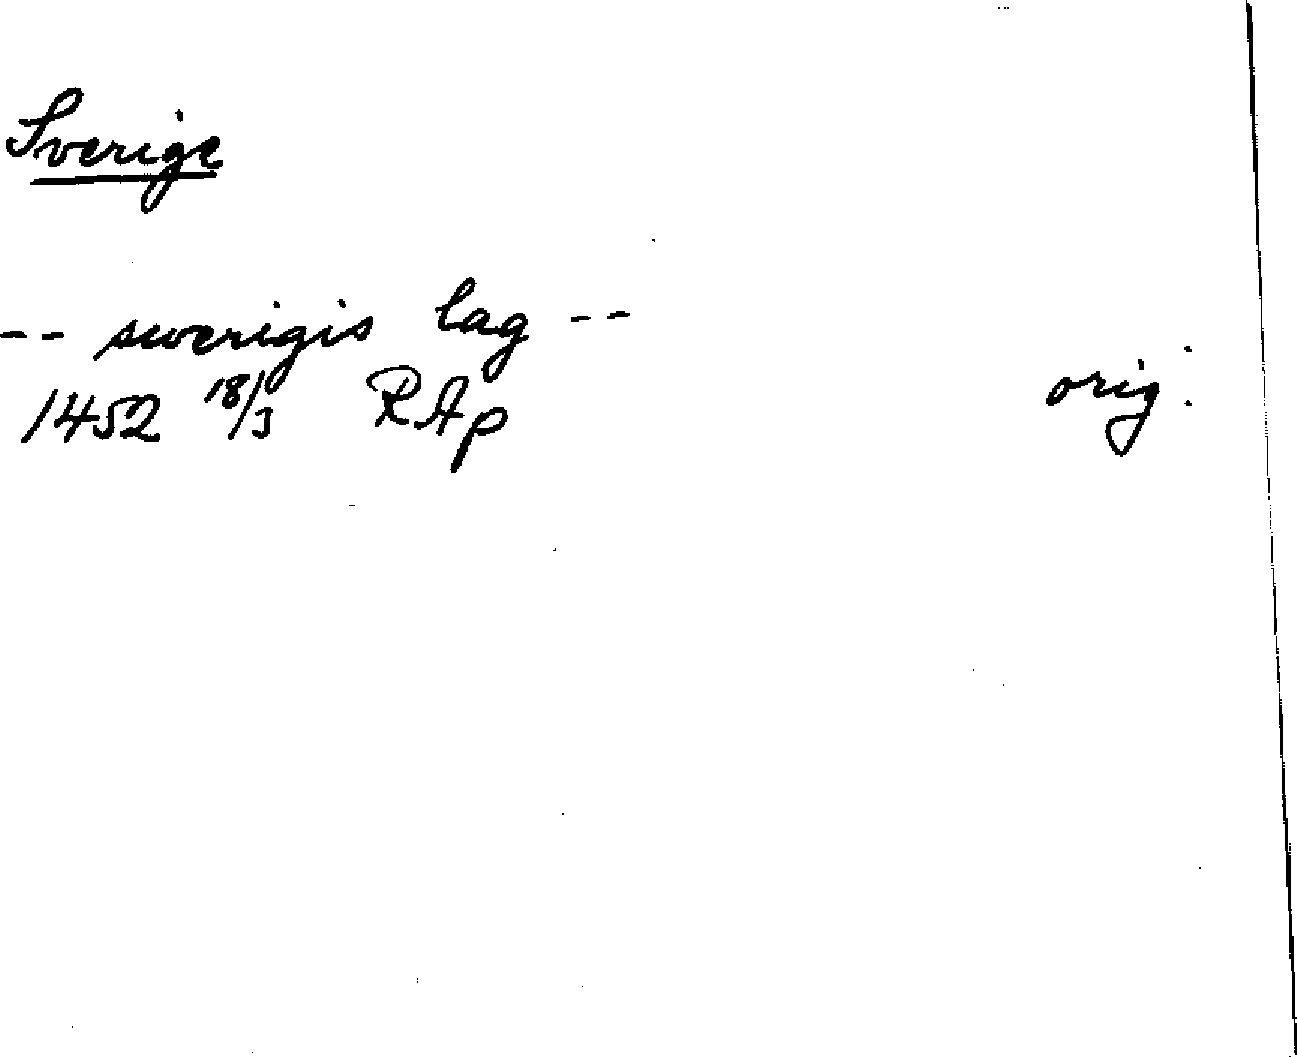 Sverige
-- swerigis lag --
1452 18/3 RAp orig.